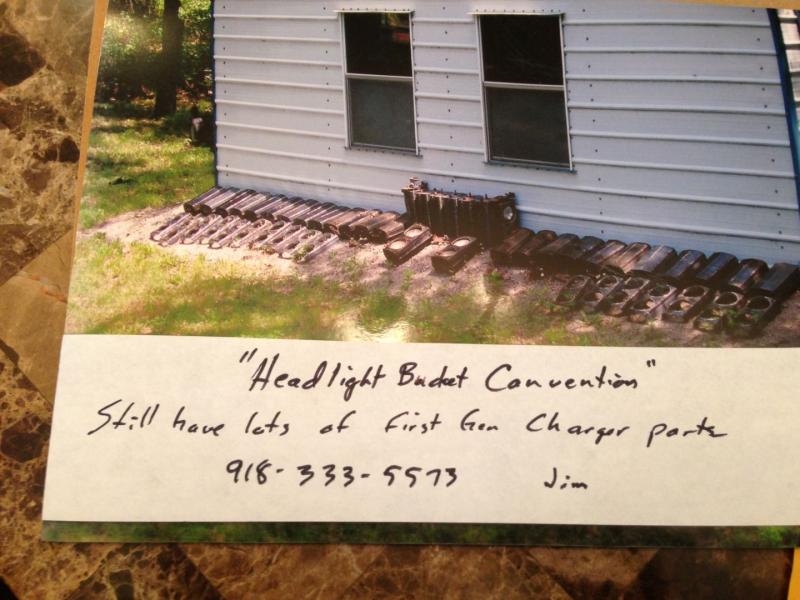 "Headlight Bucket Convention"
Still have lots of first Gen Charger parts
918-333-5573 Jim